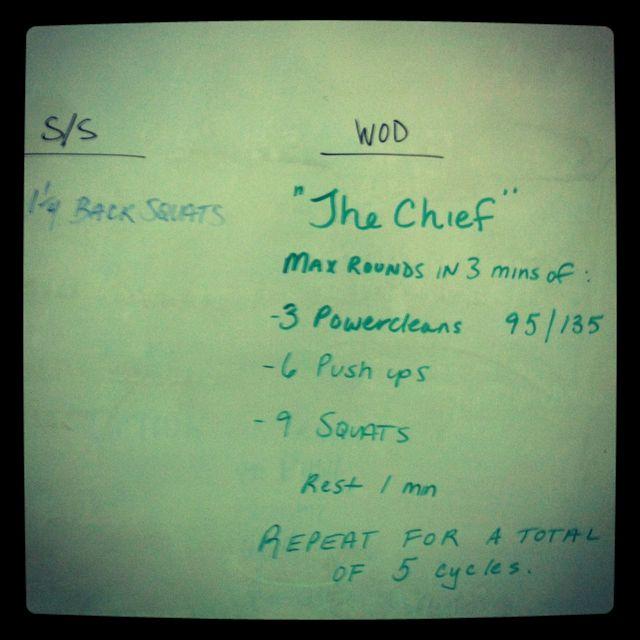 S/S
1 1/4 BACK SQUATS
WOD
"The Chief"
MAX ROUNDS IN 3 mins of:
-3 Powercleans 95/135
-6 Push ups
-9 SQUATS
Rest 1 min
REPEAT FOR A TOTAL
OF 5 cycles.